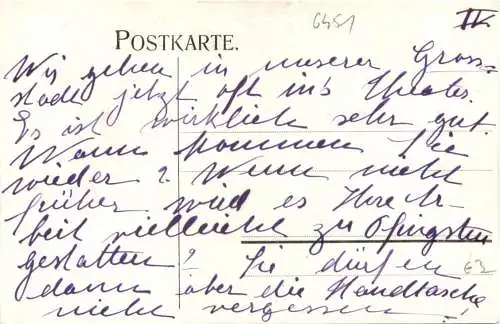 6451
IV.
POSTKARTE.
Wir gehen in unserer Gross=
stadt jetzt oft in's Theater.
Es ist wirklich sehr gut.
Wann kommen Sie
wieder? Wenn nicht
früher wird es Ihre Ar-
beit vielleicht zu Pfingsten
gestatten? Sie dürfen
dann aber die Handtasche
nicht vergessen!
63